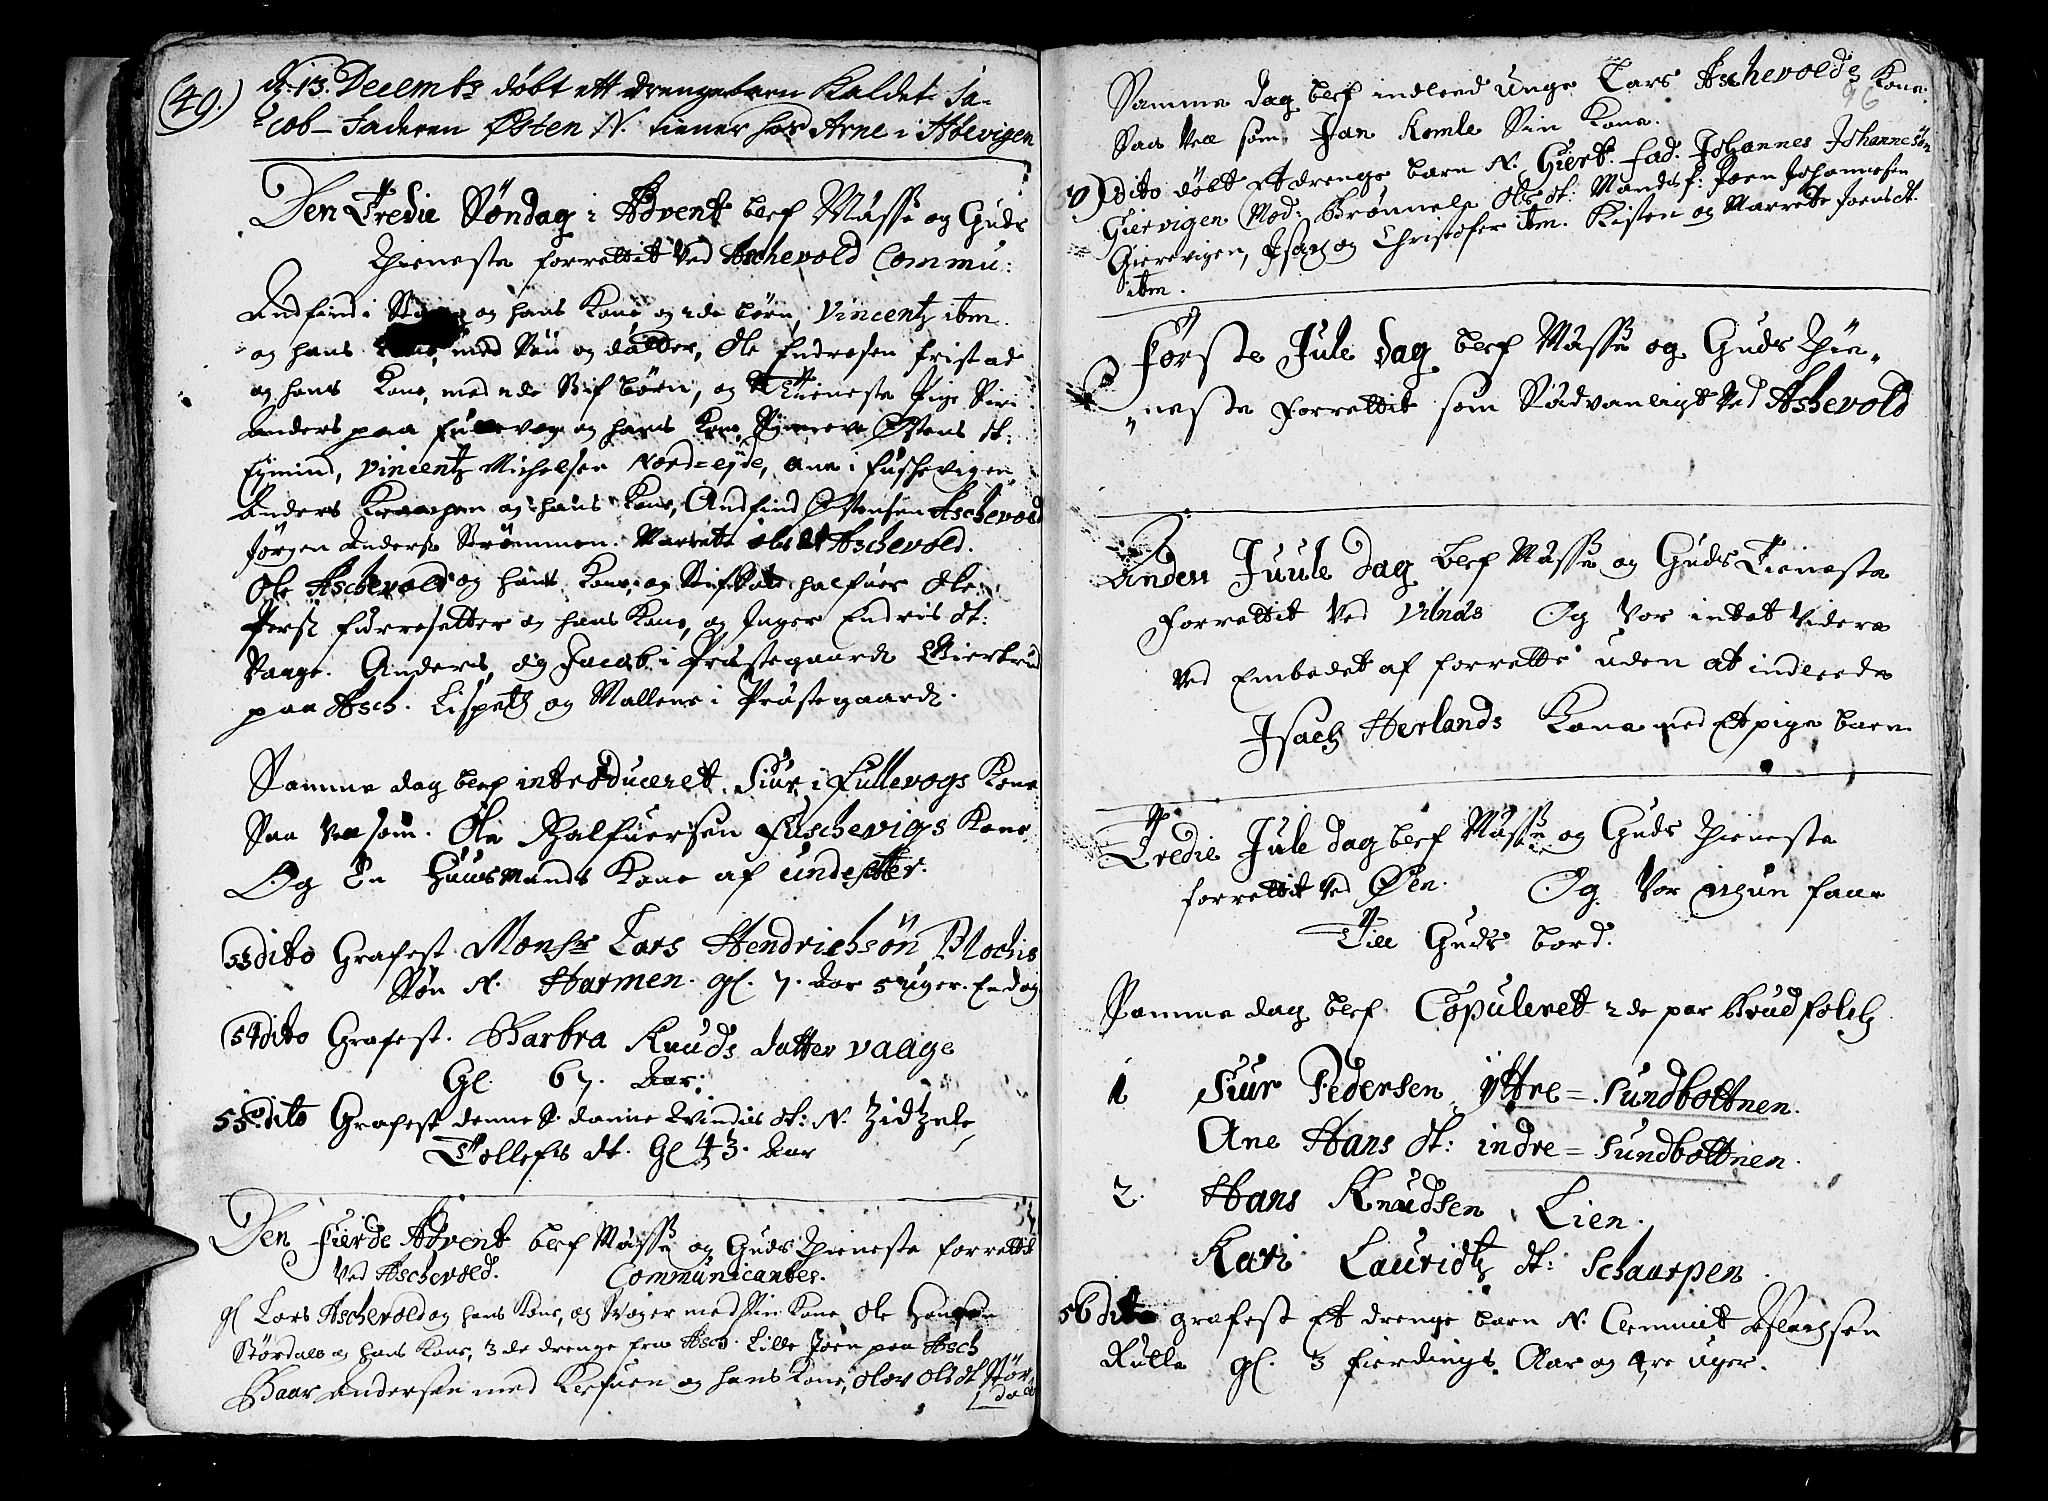 (49.) d. 13. Decembr døbt ett drengebarn Kaldet Ja-
cob – Faderen Østen N. tiener hos Arne i Aaevigen
Den Tredie Søndag i Advent blef Mæsse og Guds
Thieneste forrettit ved Aschevold Commu:
Andfind i og hans Kone og 2de børn, Vincentz ibm
og hans Kone, med Søn og datter, Ole Endresen fristad
og hans Kone, med 2de Stif børn, og Tieneste Pige Siri
Anders paa Fullevog og hans Kone, Østens dt:
Vincentz Michelsen Nord=eyde, Ane i Fuschevigen
Anders og hans Kone, Andfind Østensen Aschevold
Jørgen Anders Strømmen. Marrete Ols dt Aschevold.
Ole Aschevold og hans Kone, og halfuer Ole
Pers Furresetter og hans Kone, og Inger Endris dt:
Vaage. Anders, og Jacob i Præstegaard Giertrud
paa Asch. Lispetz og Mallene i Præstegaard.
Samme dag blef introduceret Siur i Fullevogs Kone
Saa vell som. Ole Halfuersen Fuschevigs Kone
Og En Huusmands Kone af undesetter.
53 dito Grafest Monsr Lars Hendrichsøn Blochis
Søn N. Harmen. gl. 7. Aar 5 uger. En dag
54 dito Grafest. Barbra Knuds datter vaage
Gl. 67. Aar.
55 dito Grafest denne S. danne Qvindis dt: N. Zidzele
Tollefs dt. Gl 43. Aar
Den Fierde Advent blef Mæsse og Guds Thieneste forrettit
ved Aschevold. Communicantes.
gl Lars Aschevold og hans Kone, og med Sin Kone Ole Hansen
Størdal og hans Kone, 3 de drenge fra Asch. Lille Joen paa Asch
Baar Andersen med og hans Kone, Olav Ols dt Stør
dal
Samme dag blef indleed Unge Lars Aschevolds Kone.
96
Saa vell som Jan Komle Sin Kone.
50) dito døbt Et drenge barn N. Giert. fad. Johannes Johannesøn
Giervigen Mod: Brønnele Ols dt. Mands f: Joen Johannesen
Gierevigen, Isach og Christofer ibm. Kisten og Marrete Joens dt.
ibm.
Første Jule dag blef Mæsse og Guds Thie„
„neste forrettit som Sædvanligt ved Ashevold
Anden Juule dag blef Mæsse og Guds Tieneste
forrettit ved Vilnæs Og vor intet videre
ved Embedet af forrette uden at indleede
Isach Herlands Kone med Et pige barn
Tredie Jule dag blef Mæsse og Guds Thieneste
forrettit ved Øen. Og vor Nyun faar
Till Guds bord.
Samme dag blef Copuleret 2de par Brudfolch
1 Siur Pedersen Yttre= Sundbottnen.
Ane Hans dt: indre= Sundbottnen.
2. Hans Knudsen Lien.
Kari Lauridtz dt: Schaarpen
56 dito grafest Et drenge barn N. Clemmit
Rulle gl. 3 fierdings Aar og 4re uger.